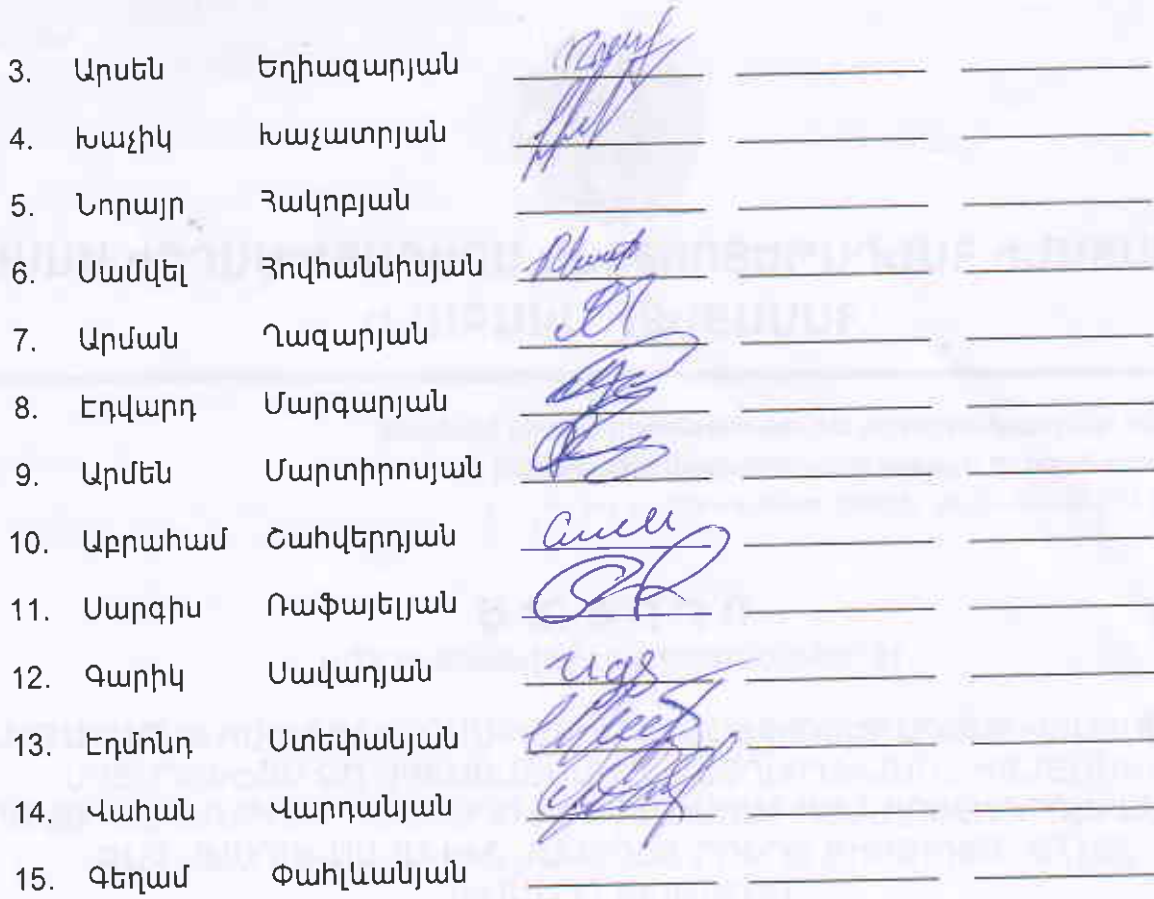 3. Արսեն Եղիազարյան
4. Խաչիկ Խաչատրյան
5. Նորայր Հակոբյան
6. Սամվել Հովհաննիսյան
7. Արման Ղազարյան
8. Էդվարդ Մարգարյան
9. Արմեն Մարտիրոսյան
10. Աբրահամ Շահվերդյան
11. Սարգիս Ռաֆայելյան
12. Գարիկ Սավադյան
13. Էդմոնդ Ստեփանյան
14. Վահան Վարդանյան
15. Գեղամ Փահլևանյան